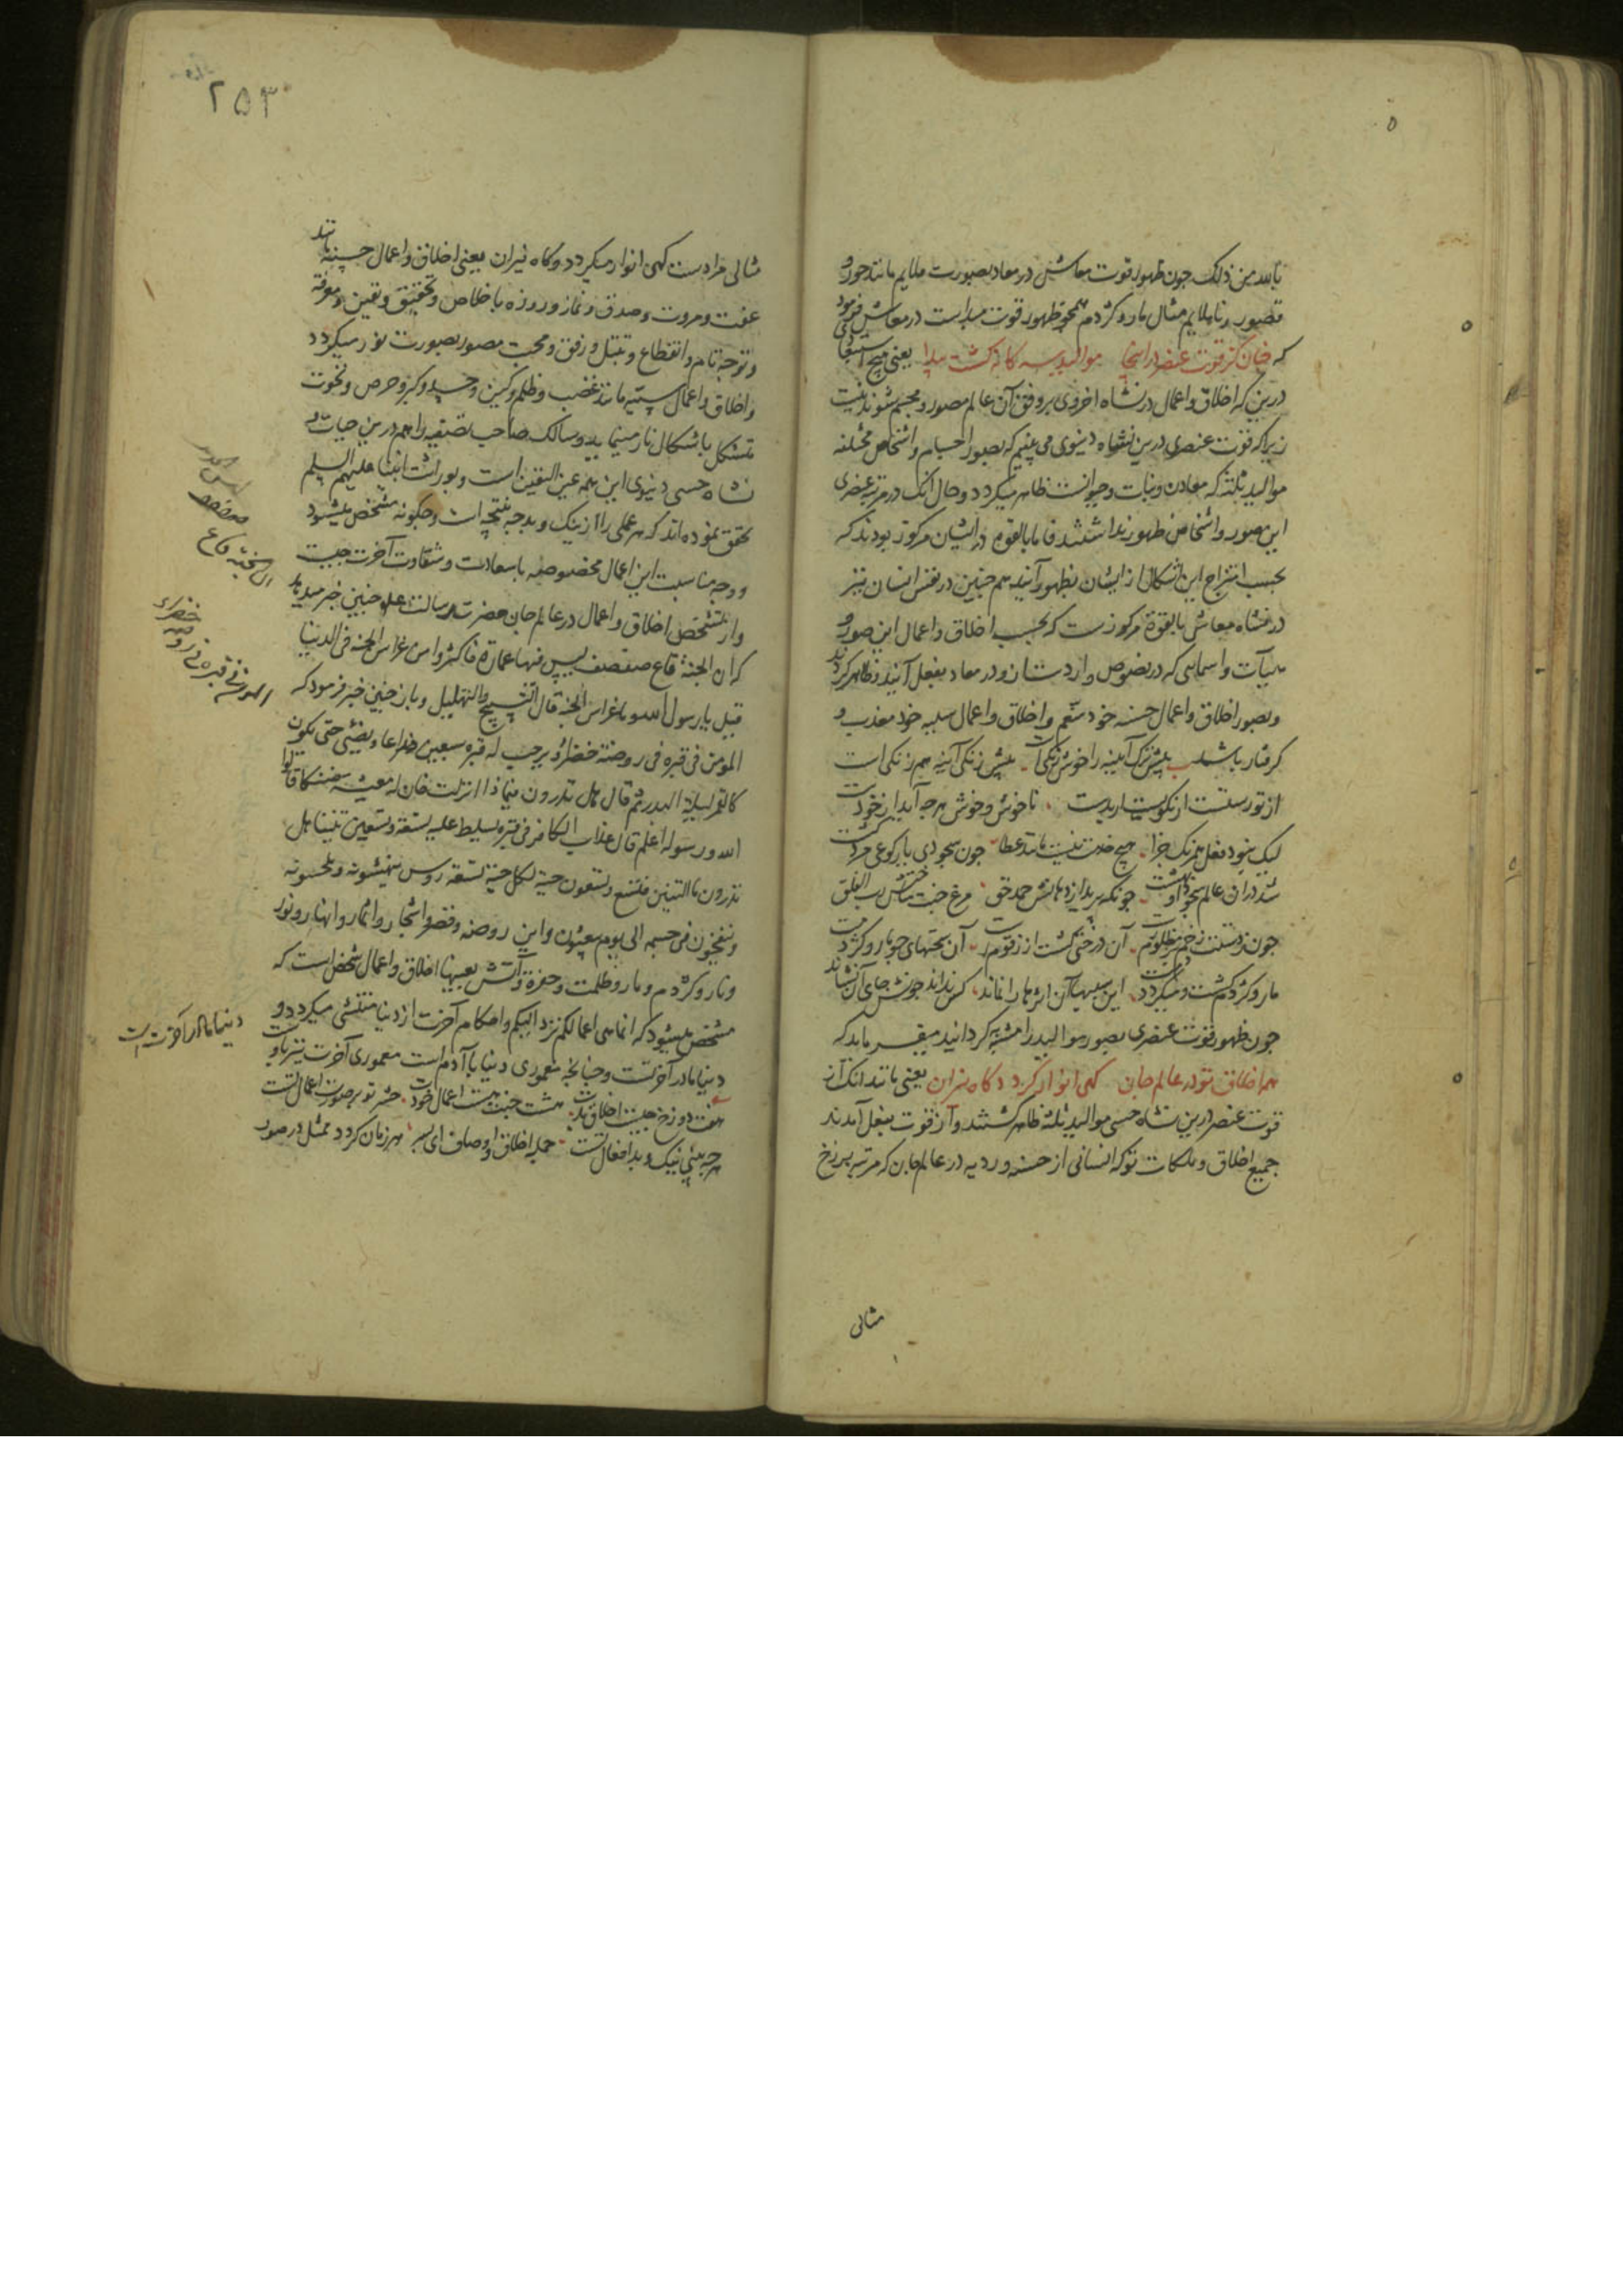 بالله من ذلک چون ظهور قوت معاش در معاد بصورت ملایم مانند حور و
قصور و ناملایم مثال مار و کژدم همچو ظهور قوت مبداست در معاش فرمود
که چنان کز قوت عنصر در اینجا موالید سه گانه گشت پیدا یعنی هیچ استبعاد
درین که اخلاق و اعمال در نشاه اخروی بر وفق آن عالم مصور و مجسم شوند نیست
زیرا که قوت عنصری درین نشاه دنیوی می بینیم که بصور اجسام و اشخاص مختلفه
موالید ثلثه که معادن و نبات و حیوانست ظاهر میگردد و حال آنک در مرتبه عنصری
این صور و اشخاص ظهور نداشتند فاما بالقوه در ایشان مرکوز بودند که
بحسب امتزاج این اشکال از ایشان بظهور آیند هم چنین در نفس انسان نیز
در نشاه معاش بالقوة مرکوزست که بحسب اخلاق و اعمال این صور و
هیآت و اسمایی که در نصوص واردست در معاد بفعل آیند و ظاهر گردند
و بصور اخلاق و اعمال حسنه خود متنعم و اخلاق و اعمال سیئه خود معذب و
گرفتار باشد پیش ترک آیینه را خوش رنگی است پیش زنگی آینه هم زنگی است
از تو رستست ار نکوست ار بدست ناخوش و خوش هرچه آید از خودست
لیک نبود فعل همرنگ جزا هیچ خدمت نیست مانند عطا چون سجودی یا رکوعی مرد کشت
شد در آن عالم سجود او بهشت چونکه پرید از دهانش حمد حق مرغ جنت ساختش رب الفلق
چون ز دستت زخم بر مظلوم رست آن درختی گشت از زقوم رست آن سخنهای چو مار و کژدمت
مار و کژدم گشت و میگیرد دمت این سببها آن اثرها را نماند کس نداند چونش جای آن نشاند
چون ظهور قوت عنصری بصور موالید را مشبه گردانید میفرماید که
همه اخلاق تو در عالم جان گهی انوار گردد گاه نیران یعنی مانند آنک از
قوت عنصر درین نشاه حسی موالید ثلثه ظاهر گشتند و از قوت بفعل آمدند
جمیع اخلاق و ملکات تو که انسانی از حسنه و ردیه در عالم جان که مرتبه برزخ
مثالی
۲۵۳
مثالی مرادست گهی انوار میگردد و گاه نیران یعنی اخلاق و اعمال حسنه مانند
عفت و مروت و صدق و نماز و روزه باخلاص و تحقیق و یقین و معرفة
و توجه تام و انقطاع و تبتل و رفق و محبت مصور بصورت نور میگردد
و اخلاق و اعمال سیئه مانند غضب و ظلم و کین و حسد و کبر و حرص و نخوت
متشکل باشکال نار مینماید و سالک صاحب تصفیه را هم درین حیات
نشاه حسی دنیوی این همه عین الیقین است و بوراثت انبیا علیهم السلم
تحقق نموده اند که هر عملی را از نیک و بد چه نتیجه است و چگونه مشخص میشود
و وجه مناسبت این اعمال مخصوصه با سعادت و شقاوت آخرت چیست
و از تشخص اخلاق و اعمال در عالم جان حضرت رسالت علم چنین خبر میدهد
که ان الجنة قاع صفصف لیس فیها عمارة فاکثروا من غراس الجنة فی الدنیا
قیل یا رسول الله و ما غراس الجنة قال التسبیح والتهلیل و باز چنین خبر فرمود که
المؤمن فی قبره فی روضة خضراء و یرحب له قبره سبعین ذراعا و یضئ حتی یکون
کالقمر لیلة البدر ثم قال هل تدرون فیما ذا انزلت فان له معیشة ضنکا قالوا
الله و رسوله اعلم قال عذاب الکافر فی قبره یسلط علیه تسعة و تسعین تنینا هل
تدرون ما التنین تسع و تسعون حیة لکل حیة تسعة روس ینهشونه و یلحسونه
و ینفخون فی جسمه الی یوم یبعثون و این روضه و قصر و اشجار و اثمار و انهار و نور
و نار و کژدم و مار و ظلمت و حفرة و آتش بعینها اخلاق و اعمال شخص است که
مشخص میشود که انما هی اعمالکم ترد الیکم و احکام آخرت از دنیا منتشی میگردد و
دنیا مادر آخرتست و چنانچه معموری دنیا باآدم است معموری آخرت نیز باوست
هفت دوزخ چیست اخلاق بدت هشت جنت هست اعمال خودت حشر تو بر صورت اعمال تست
هرچه بینی نیک و بد افعال تست جمله اخلاق و اوصاف ای پسر هر زمان گردد ممثل در صور
ان الجنة قاع
صفصف
المؤمن فی قبره فی روضة
خضراء
دنیا مادر آخرت است